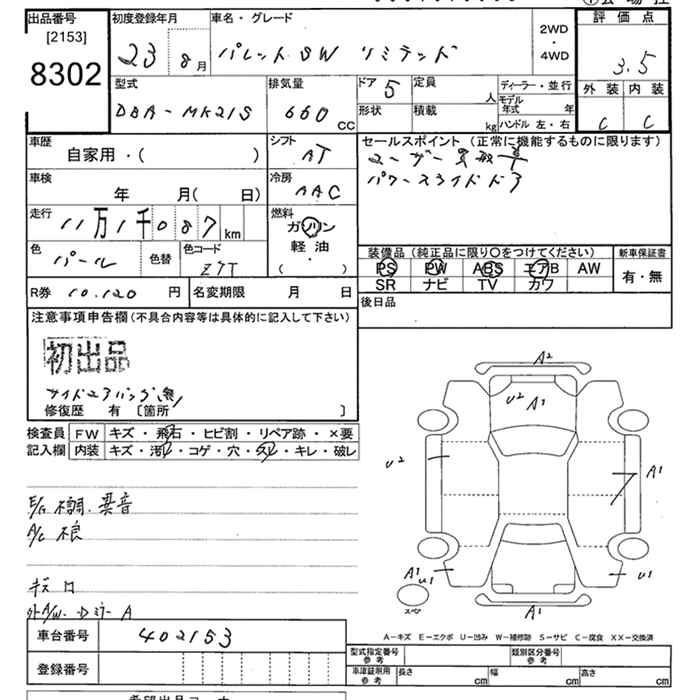 出品番号
[2153]
8302
初度登録年月
23 8月
車名・グレード
パレット SW リミテッド
2WD
・
4WD
評価点
3.5
外装 内装
C C
型式
DBA-MK21S
排気量
660 CC
ドア 5
形状
定員 人
積載 kg
ディーラー・並行
モデル年式 年
ハンドル 左・右
車歴
自家用・( )
シフト
AT
セールスポイント (正常に機能するものに限ります)
ユーザー買取車
パワースライドドア
車検
年 月( 日)
冷房
AAC
走行
11万1千087km
燃料
ガソリン
軽油
( ・ )
色
パール
色替
色コード
Z7T
装備品 (純品に限り○をつけてください)
PS PW ABS エアB AW
SR ナビ TV カワ
新車保証書
有・無
R券 10,120 円
名変期限 月 日
後日品
注意事項申告欄(不具合内容等は具体的に記入して下さい)
初出品
サイドエアバッグ無し
修復歴 有 〔箇所 〕
検査員記入欄
FW キズ・飛石・ヒビ割・リペア跡・×要
内装 キズ・汚レ・コゲ・穴・スレ・キレ・破レ
E/G 不調、異音
A/C 不良
キズ 凹
外A/W-Dミラー A
A2
U2 A1
U2
A1
A1
U1
U1
A1
スペア
A-キズ E-エクボ U-凹み W-補修跡 S-サビ C-腐食 XX-交換済
車台番号 402153
登録番号
型式指定番号 参考
類別区分番号 参考
車庫証明用 参考
長さ cm
幅 cm
高さ cm